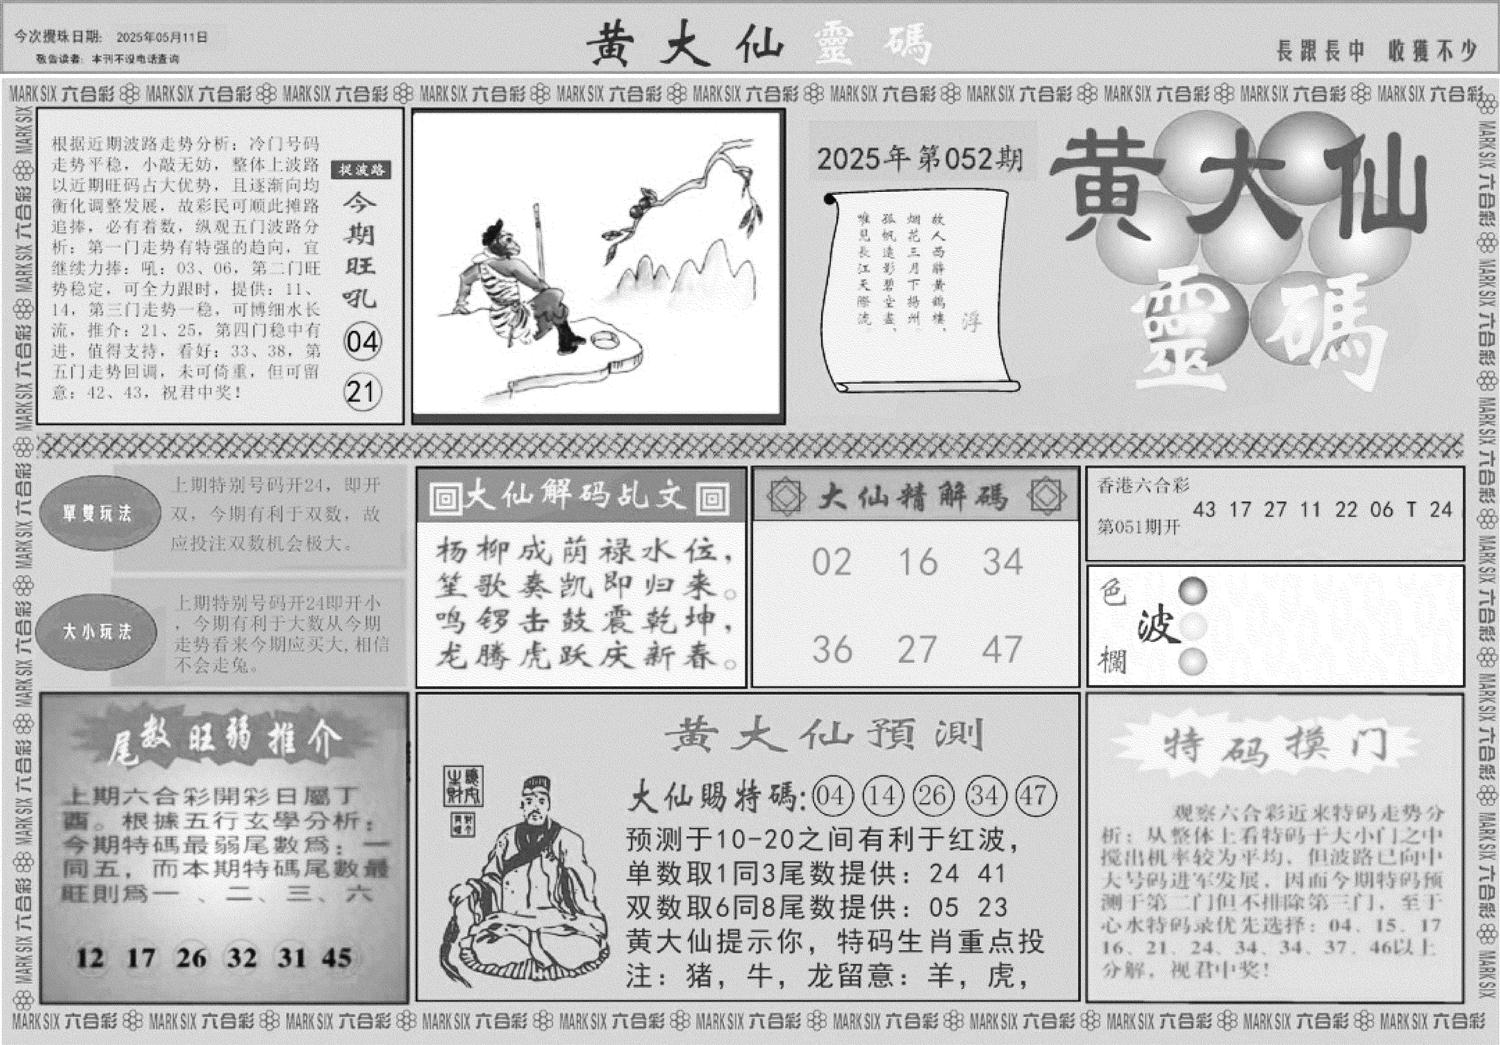 今次攪珠日期: 2025年05月11日
敬告读者: 本刊不设电话查询
黄大仙靈碼
長跟長中 收獲不少
MARK SIX 六合彩 MARK SIX 六合彩 MARK SIX 六合彩 MARK SIX 六合彩 MARK SIX 六合彩 MARK SIX 六合彩 MARK SIX 六合彩 MARK SIX 六合彩 MARK SIX 六合彩 MARK SIX 六合彩 MARK SIX 六合彩
根据近期波路走势分析: 冷门号码
走势平稳, 小敲无妨, 整体上波路
以近期旺码占大优势, 且逐渐向均
衡化调整发展, 故彩民可顺此摊路
追捧, 必有着数, 纵观五门波路分
析: 第一门走势有特强的趋向, 宜
继续力捧: 吼: 03、06, 第二门旺
势稳定, 可全力跟时, 提供: 11、
14, 第三门走势一稳, 可博细水长
流, 推介: 21、25, 第四门稳中有
进, 值得支持, 看好: 33、38, 第
五门走势回调, 未可倚重, 但可留
意: 42、43, 祝君中奖!
捉波路
今期旺吼
04
21
2025年第052期
故人西辭黃鶴樓、
烟花三月下揚州。
孤帆遠影碧空盡、
唯見長江天際流
浮
黄大仙
靈碼
單雙玩法
上期特别号码开24, 即开
双, 今期有利于双数, 故
应投注双数机会极大。
大小玩法
上期特别号码开24即开小
, 今期有利于大数从今期
走势看来今期应买大, 相信
不会走兔。
大仙解码乩文
杨柳成荫禄水位,
笙歌奏凯即归来。
鸣锣击鼓震乾坤,
龙腾虎跃庆新春。
大仙精解碼
02 16 34
36 27 47
香港六合彩
第051期开
43 17 27 11 22 06 T 24
色
波
欄
尾数旺弱推介
上期六合彩開彩日屬丁
酉。根據五行玄學分析:
今期特碼最弱尾數爲: 一
同五, 而本期特碼尾數最
旺則爲一 、二、三、六
12 17 26 32 31 45
黄大仙預測
大仙賜特碼: 04 14 26 34 47
预测于10-20之间有利于红波,
单数取1同3尾数提供: 24 41
双数取6同8尾数提供: 05 23
黄大仙提示你, 特码生肖重点投
注: 猪, 牛, 龙留意: 羊, 虎,
特码摸门
观察六合彩近来特码走势分
析: 从整体上看特码于大小门之中
搅出机率较为平均, 但波路已向中
大号码进军发展, 因而今期特码预
测于第二门但不排除第三门, 至于
心水特码录优先选择: 04、15、17
16、21、24、34、34、37、46以上
分解, 祝君中奖!
MARK SIX 六合彩 MARK SIX 六合彩 MARK SIX 六合彩 MARK SIX 六合彩 MARK SIX 六合彩 MARK SIX 六合彩 MARK SIX 六合彩 MARK SIX 六合彩 MARK SIX 六合彩 MARK SIX 六合彩 MARK SIX 六合彩